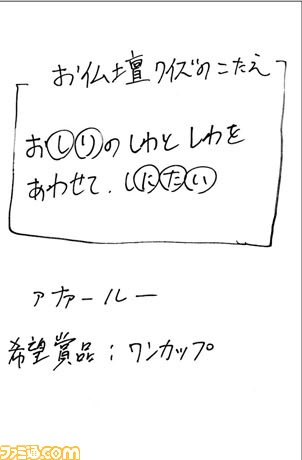 お仏壇クイズのこたえ
おしりのしわとしわを
あわせて、しにたい
アナァールー
希望賞品：ワンカップ
ファミ通.com